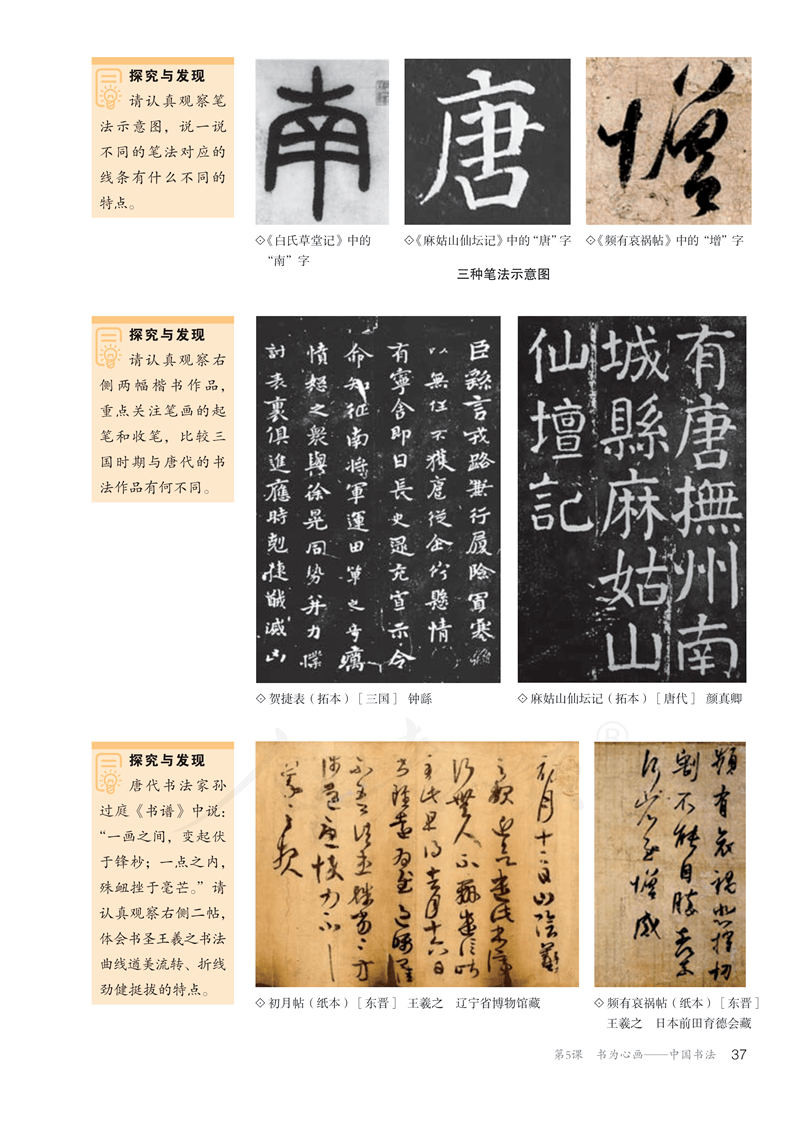 探究与发现
请认真观察笔
法示意图，说一说
不同的笔法对应的
线条有什么不同的
特点。
南
唐
憎
◇《白氏草堂记》中的
“南”字
◇《麻姑山仙坛记》中的“唐”字
◇《频有哀祸帖》中的“增”字
三种笔法示意图
探究与发现
请认真观察右
侧两幅楷书作品，
重点关注笔画的起
笔和收笔，比较三
国时期与唐代的书
法作品有何不同。
臣繇言戎路兼行履險冒寒
以無任不獲扈從企佇懸情
有寧舍即日長史逯充宣示令
命知征南將軍運田單之奇厲
憤怒之衆與徐晃同勢并力
討表裏俱進應時剋捷馘滅凶
有唐撫州南
城縣麻姑山
仙壇記
◇贺捷表（拓本）［三国］ 钟繇
◇麻姑山仙坛记（拓本）［唐代］ 颜真卿
探究与发现
唐代书法家孙
过庭《书谱》中说：
“一画之间，变起伏
于锋杪；一点之内，
殊衄挫于毫芒。”请
认真观察右侧二帖，
体会书圣王羲之书法
曲线遒美流转、折线
劲健挺拔的特点。
初月十二日山陰羲
頻有哀禍悲摧切
割不能自勝奈何
省慰增感
◇初月帖（纸本）［东晋］ 王羲之 辽宁省博物馆藏
◇频有哀祸帖（纸本）［东晋］
王羲之 日本前田育德会藏
第5课 书为心画——中国书法 37